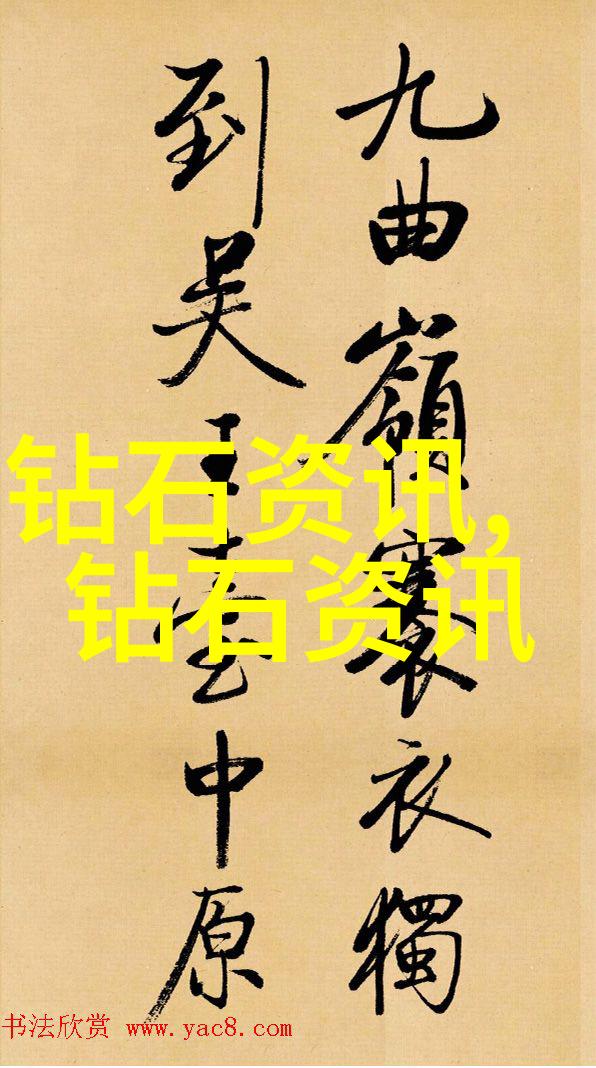 九曲嶺褰衣獨
到吳王臺中原
钻石资讯,
钻石资讯
书法欣赏 www.yac8.com